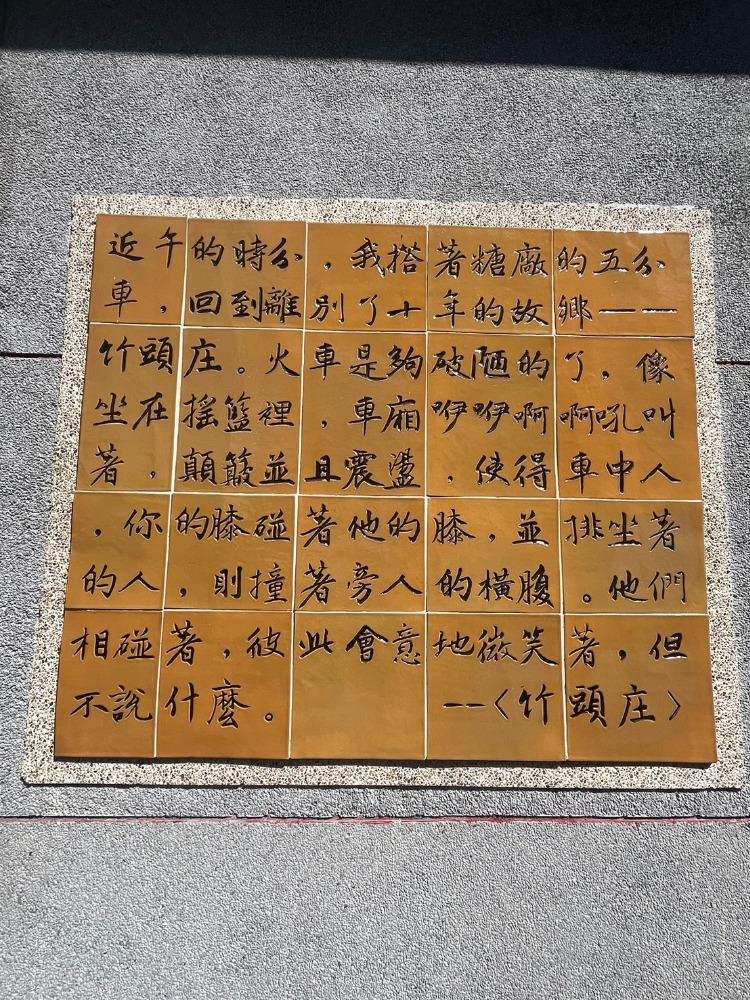 近午的時分，我搭著糖廠的五分
車，回到離別了十年的故鄉——
竹頭庄。火車是夠破陋的了，像
坐在搖籃裡，車廂咿咿啊啊吼叫
著，顛簸並且震盪，使得車中人
，你的膝碰著他的膝，並排坐著
的人，則撞著旁人的橫腹。他們
相碰著，彼此會意地微笑著，但
不說什麼。 --〈竹頭庄〉